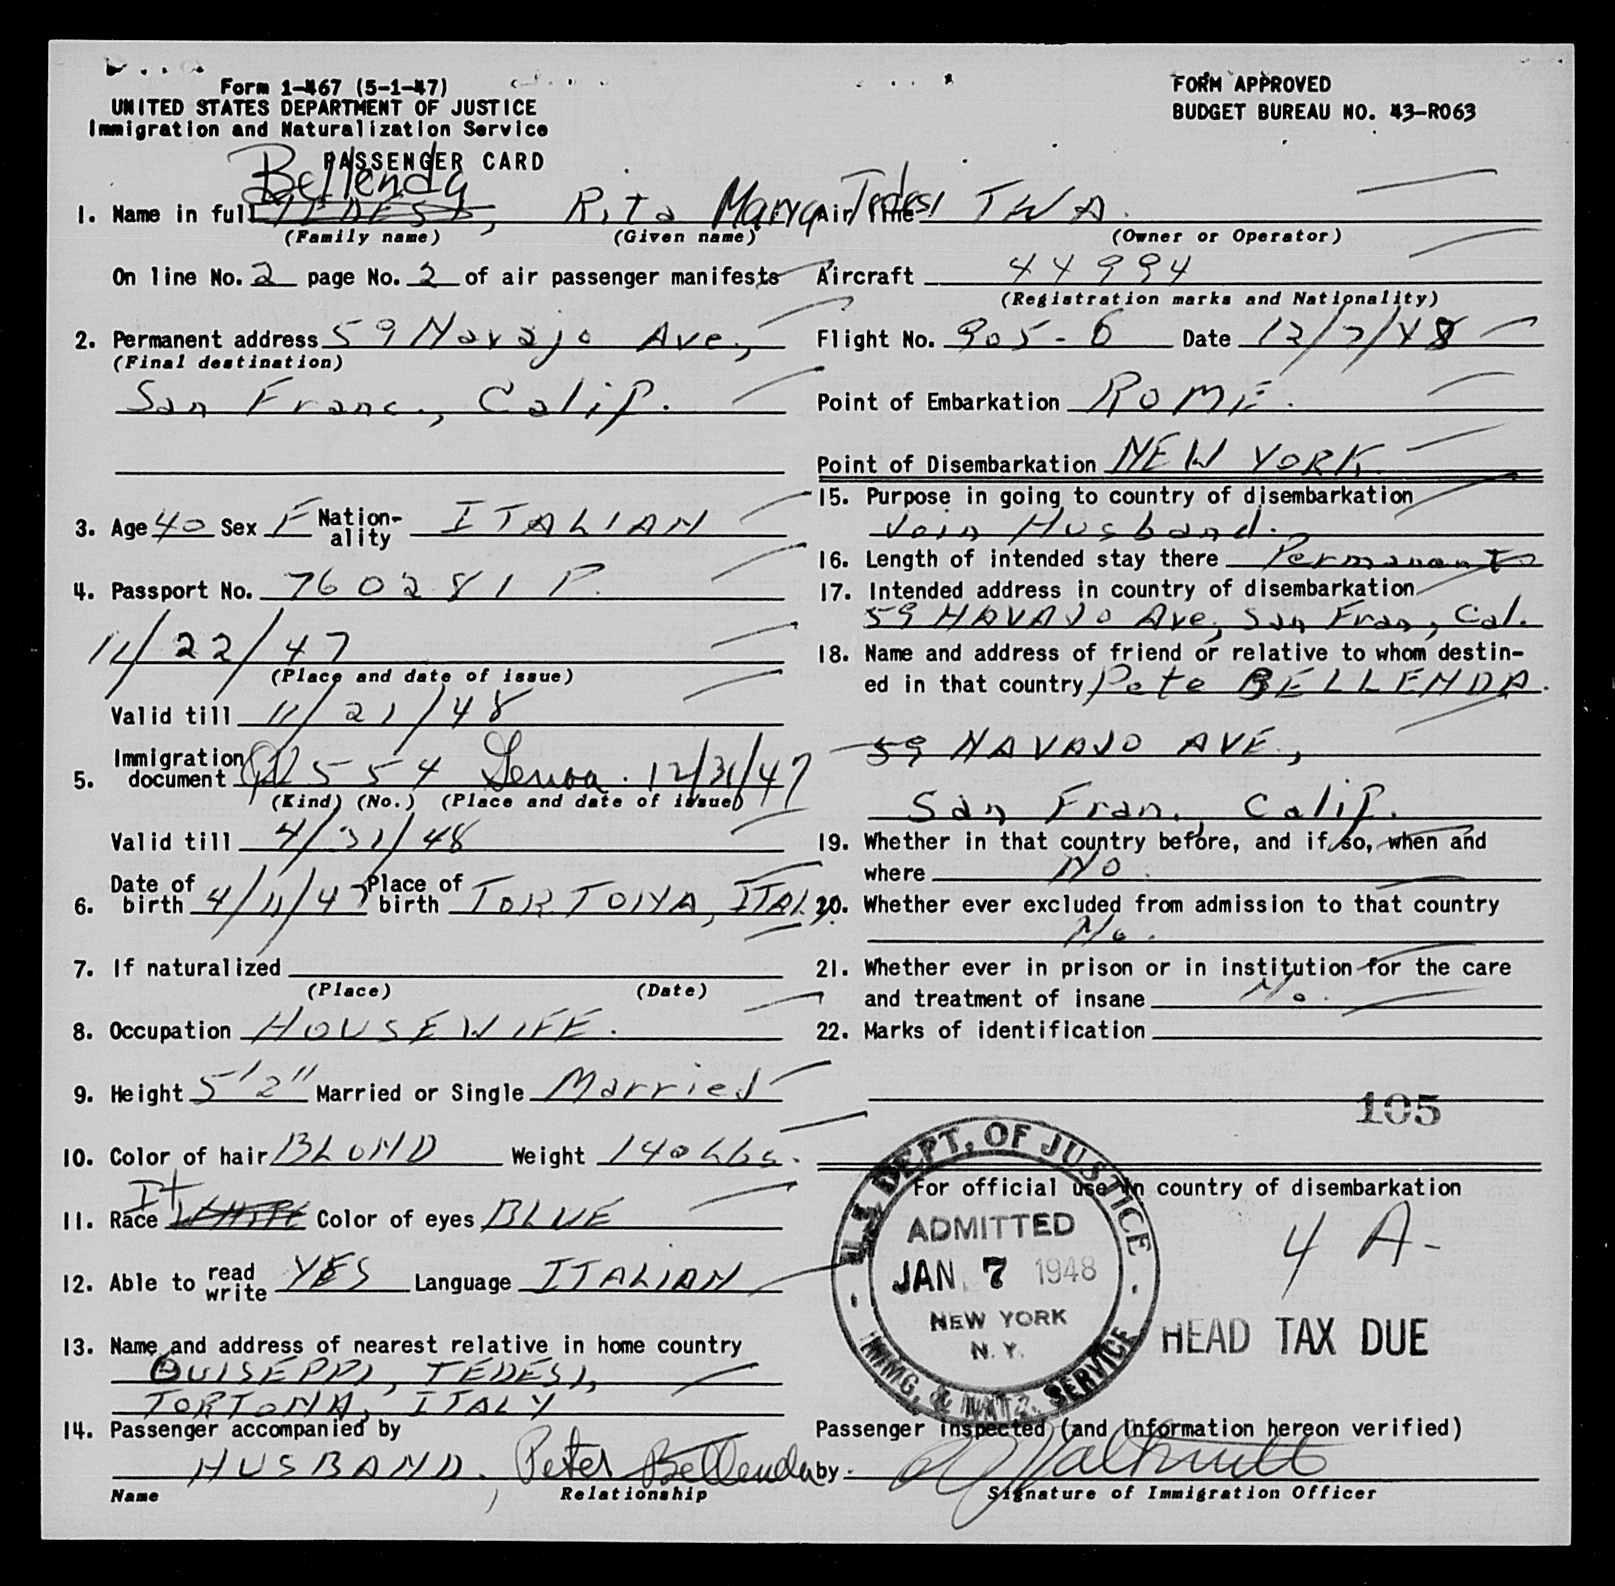 Form 1-467 (5-1-47)
UNITED STATES DEPARTMENT OF JUSTICE
Immigration and Naturalization Service
PASSENGER CARD
FORM APPROVED
BUDGET BUREAU NO. 43-R063
Bellenda
1. Name in full TEDESI, Rita Marya Tedesi
(Family name) (Given name)
On line No. 2 page No. 2 of air passenger manifests
2. Permanent address 59 Navajo Ave.,
(Final destination)
San Franc., Calif.
3. Age 40 Sex F Nation-ality ITALIAN
4. Passport No. 760281 P.
11/22/47
(Place and date of issue)
Valid till 11/21/48
5. Immigration document 554 Genoa. 12/31/47
(Kind) (No.) (Place and date of issue)
Valid till 4/31/48
6. Date of birth 4/11/47 Place of birth TORTONA, ITAL
7. If naturalized
(Place) (Date)
8. Occupation HOUSEWIFE.
9. Height 5'2" Married or Single Married
10. Color of hair BLOND Weight 140 Lbs.
It
11. Race WHITE Color of eyes BLUE
12. Able to read write YES Language ITALIAN
13. Name and address of nearest relative in home country
GUISEPPI, TEDESI,
TORTONA, ITALY
14. Passenger accompanied by
HUSBAND. Peter Bellenda
Name Relationship
Air line TWA.
(Owner or Operator)
Aircraft 44994
(Registration marks and Nationality)
Flight No. 905-6 Date 12/7/48
Point of Embarkation ROME.
Point of Disembarkation NEW YORK.
15. Purpose in going to country of disembarkation
Join Husband.
16. Length of intended stay there Permanant
17. Intended address in country of disembarkation
59 NAVAJO Ave, San Fran, Cal.
18. Name and address of friend or relative to whom destin-
ed in that country Pete BELLENDA.
59 NAVAJO AVE.,
San Fran., Calif.
19. Whether in that country before, and if so, when and
where NO.
20. Whether ever excluded from admission to that country
No.
21. Whether ever in prison or in institution for the care
and treatment of insane No.
22. Marks of identification
105
For official use in country of disembarkation
4 A-
U.S. DEPT. OF JUSTICE
ADMITTED
JAN 7 1948
NEW YORK
N.Y.
IMMG. & NATZ. SERVICE
HEAD TAX DUE
Passenger inspected (and information hereon verified)
by
Signature of Immigration Officer